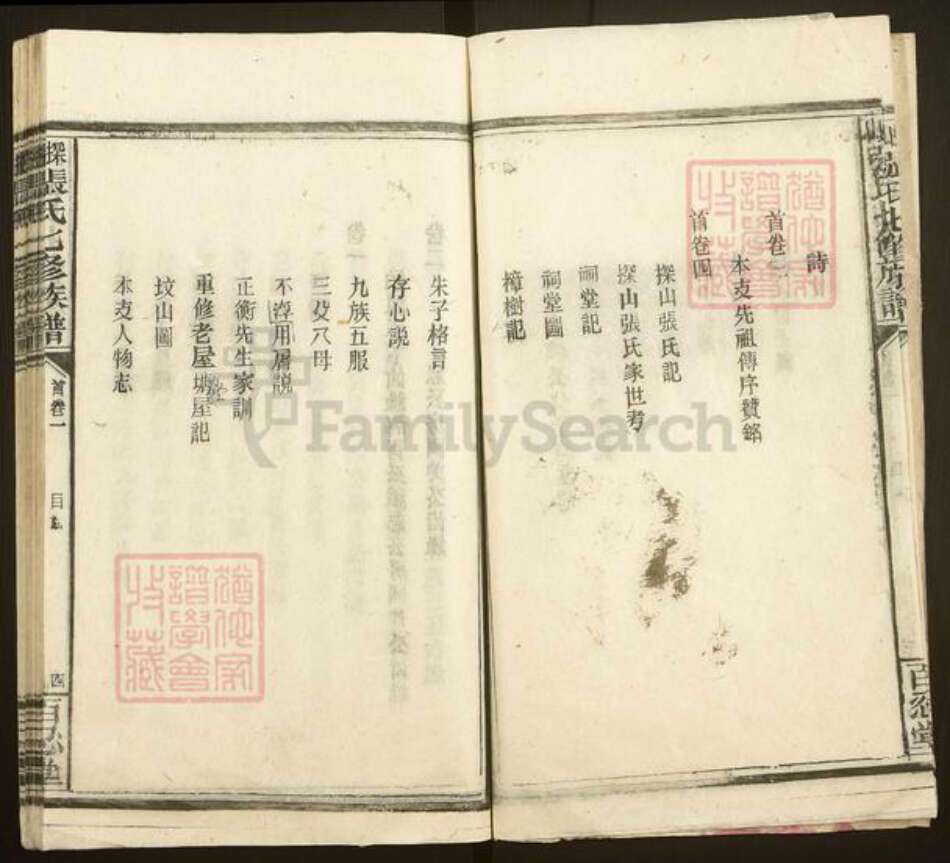 詩
首卷三
本支先祖傳序贊銘
首卷四
探山張氏記
探山張氏家世考
祠堂記
祠堂圖
樟樹記
朱子格言
存心説
九族五服
三父八母
不淳用層説
正衡先生家訓
重修老屋塲屋記
坟山圖
本支人物志
張氏七修族譜
首卷一
四
百忍堂
百忍堂
FamilySearch